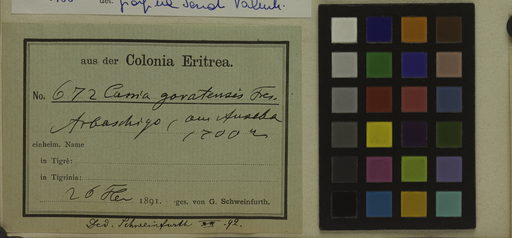 det.
aus der Colonia Eritrea.
No. 672 Cassia goratensis Fres.
Arbaschigo, am Anseba
1700 m
einheim. Name
in Tigrè:
in Tigrinia:
26 1891. ges. von G. Schweinfurth.
Ded. Schweinfurth 92.